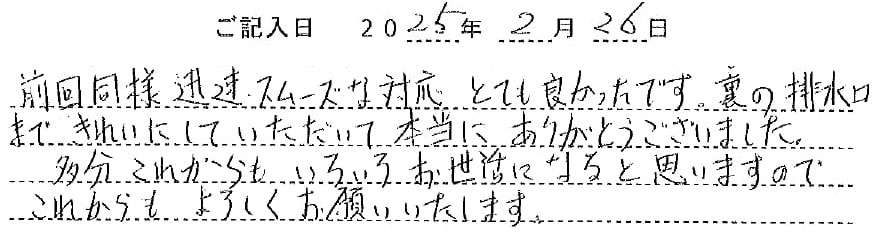 ご記入日 2025年 2月 26日
前回同様 迅速.スムーズな対応 とても良かったです。裏の排水口
まで きれいにしていただいて 本当に ありがとうございました。
多分 これからも いろいろ お世話になると思いますので
これからも よろしくお願いいたします。